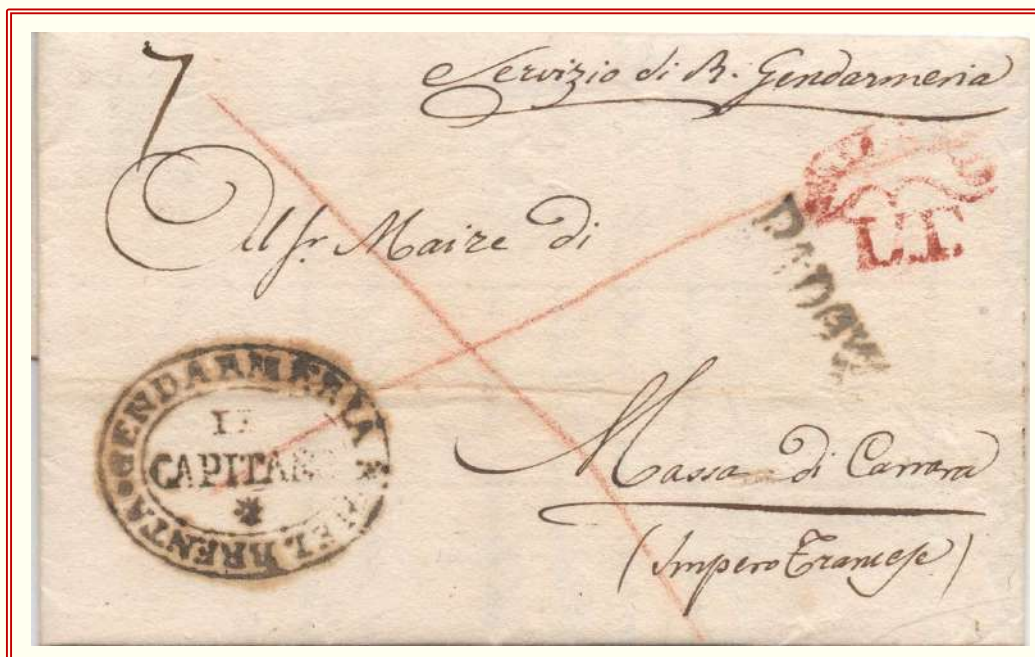 7
Servizio di R. Gendarmeria
Al Sr. Maire di
L.T.
PADOVA
GENDARMERIA R. DEL BRENTA
IL
CAPITANO
Massa di Carrara
(Impero Francese)